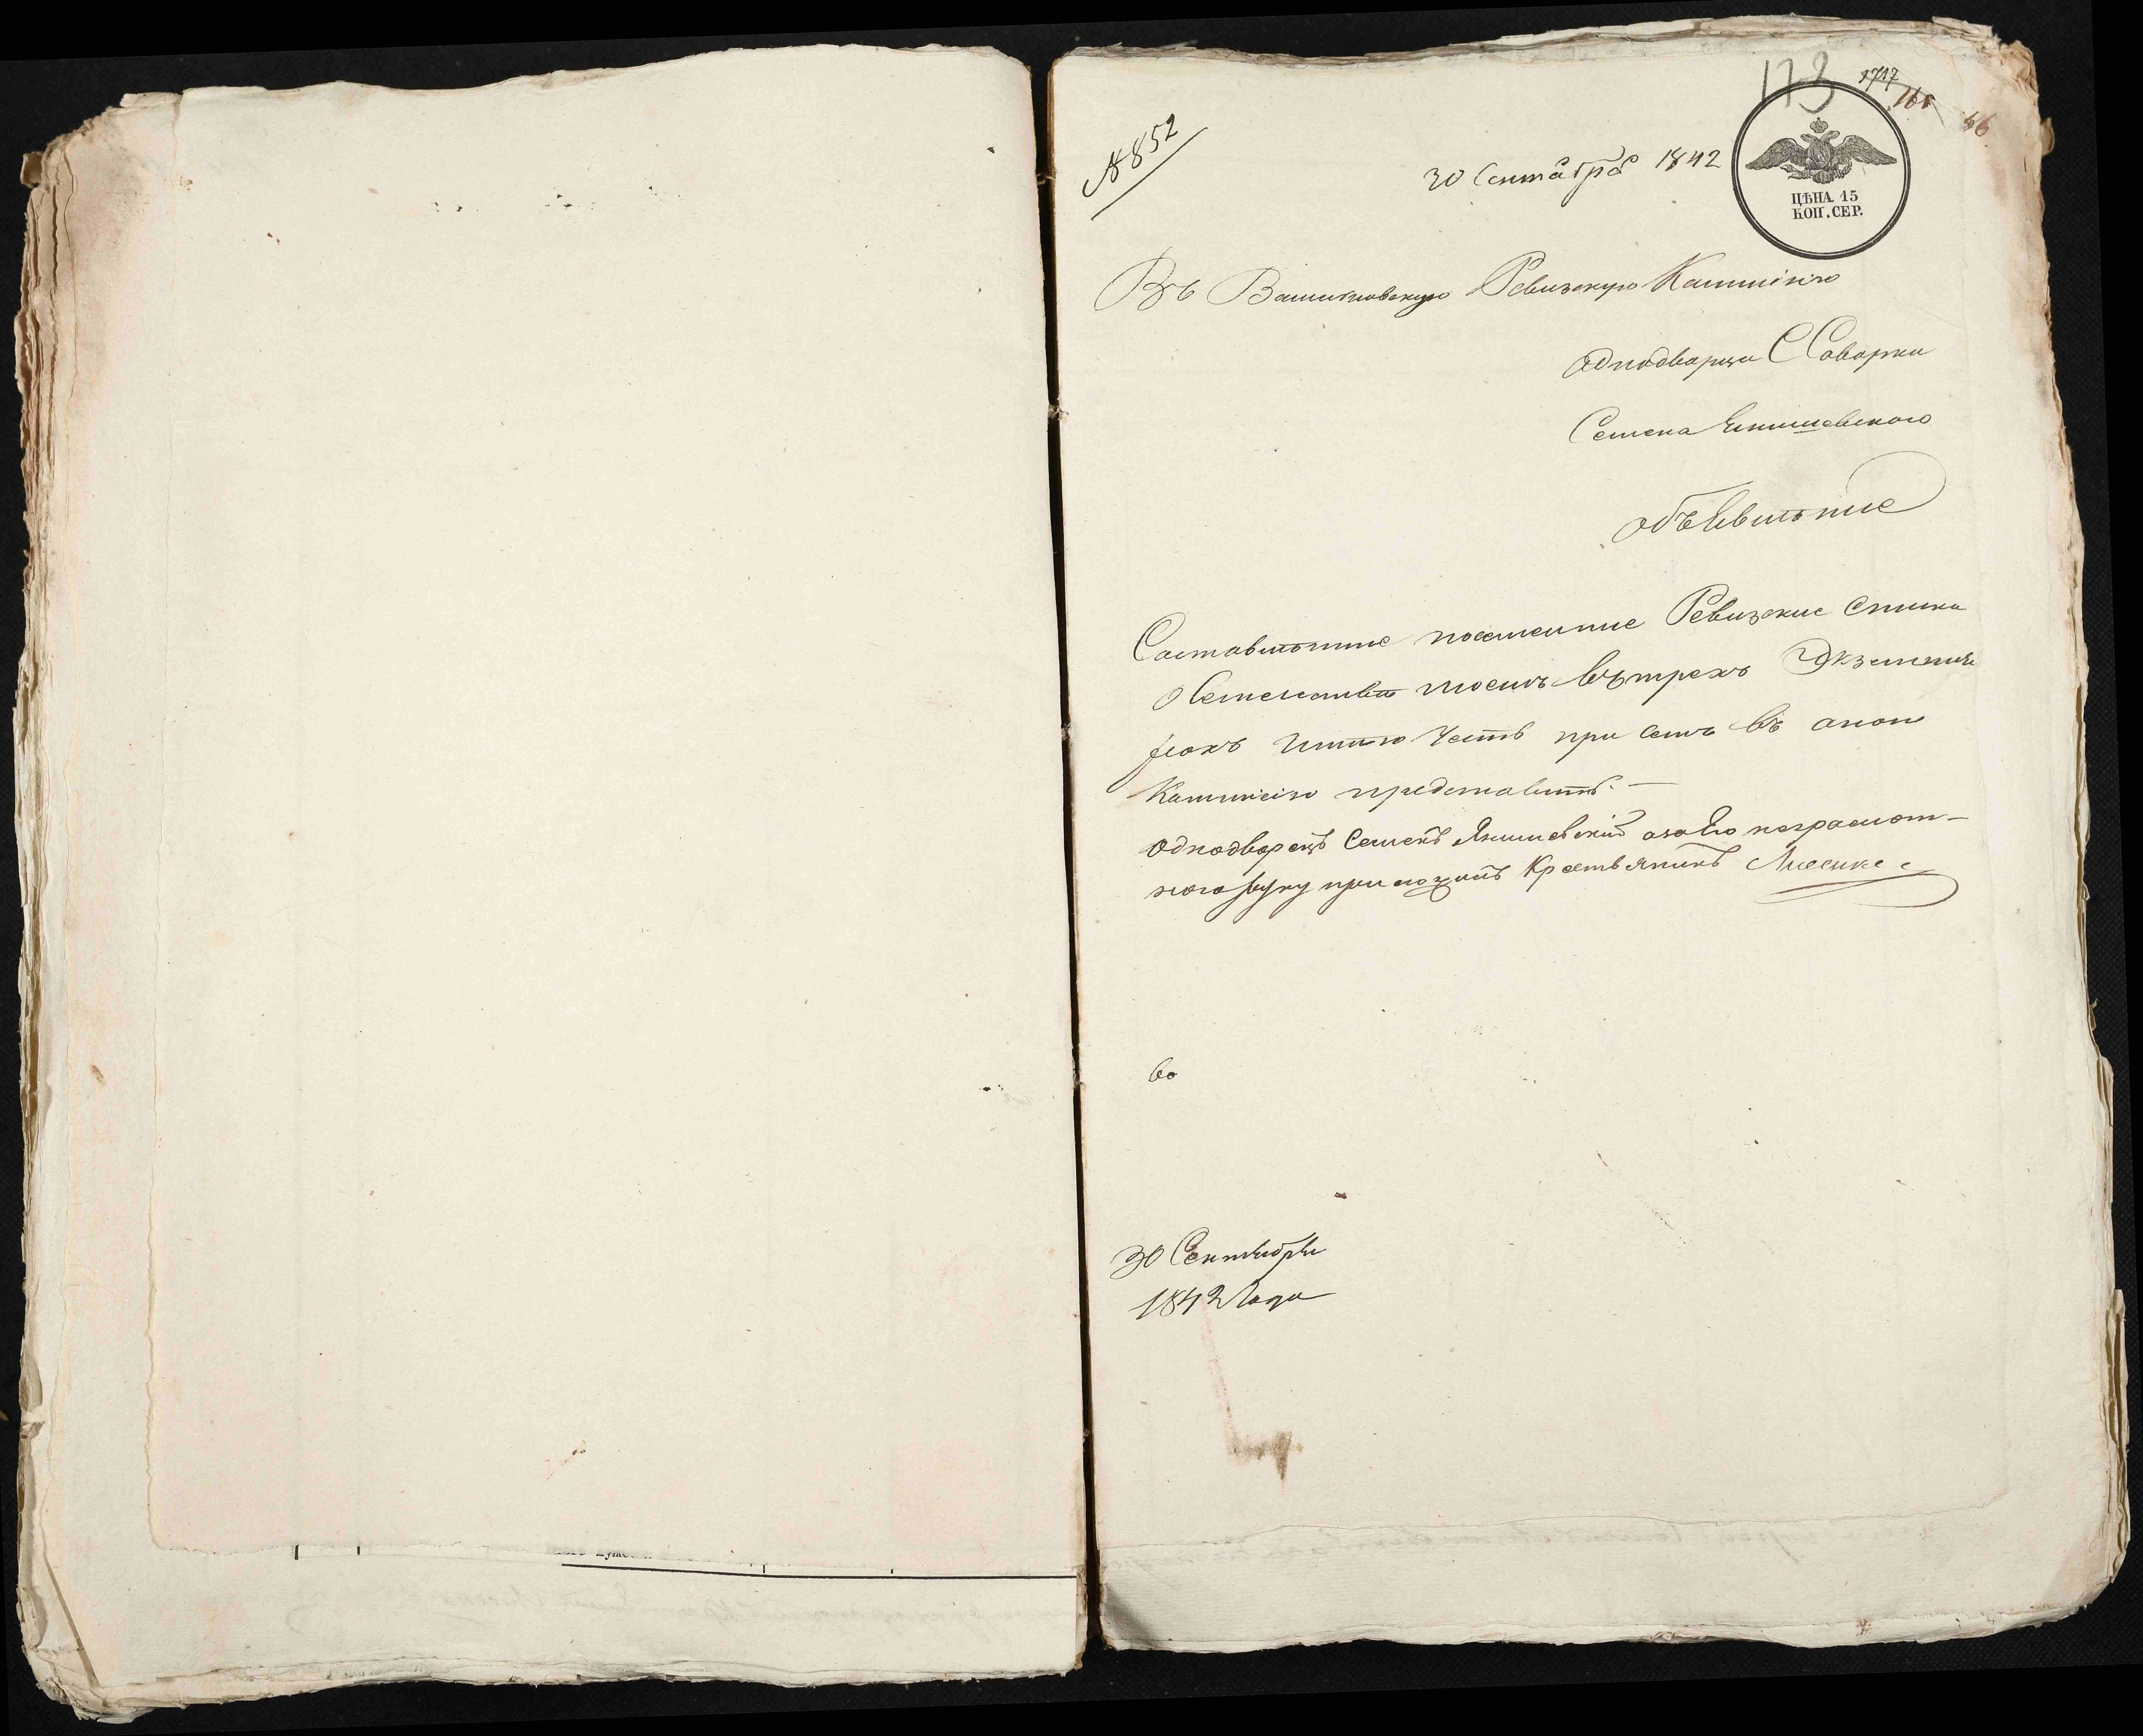 173
166
№ 852
30 Сентября 1842
ЦѢНА 15
КОП. СЕР.
Въ Васильковскую Ревизскую Коммисію
Однодворца С Саварки
Семена Янишевского
Объявленіе
Составленные посемейные Ревизские списки
о Семействе моемъ въ трехъ Экземпля
рахъ Имѣю честь при семъ въ оною
Коммисію представить. —
Однодворецъ Семенъ Янишевский а за Его неграмот-
ного руку приложилъ Крестьянинъ
во
30 Сентября
1842 Года